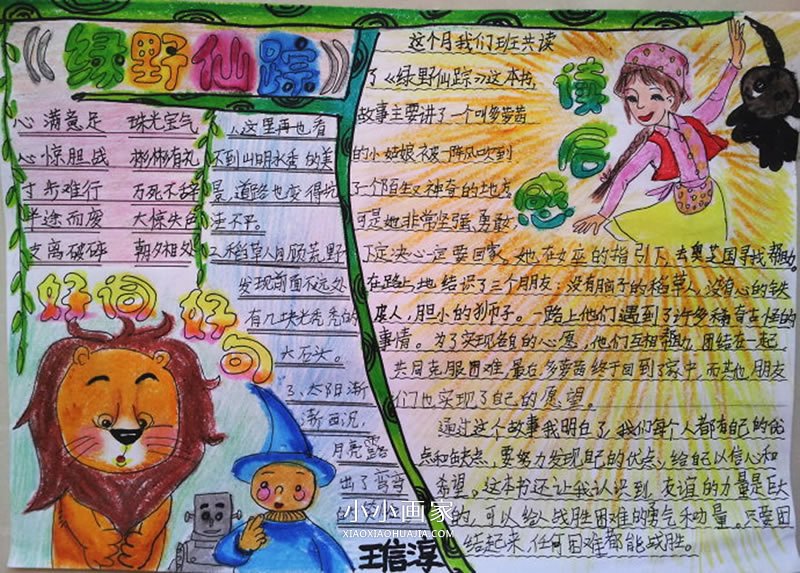 《绿野仙踪》
心满意足 珠光宝气
心惊胆战 彬彬有礼
寸步难行 万死不辞
半途而废 大惊失色
支离破碎 朝夕相处
好词好句
1、这里再也看
不到山明水秀的美
景,道路也变得坑
洼不平。
2、稻草人自顾荒野
发现前面不远处
有几块光秃秃的
大石头。
3、太阳渐
渐西沉,
月亮露
出了弯弯
读后感
这个月我们班共读
了《绿野仙踪》这本书,
故事主要讲了一个叫多萝茜
的小姑娘被一阵风吹到
了一个陌生又神奇的地方
可是她非常坚强、勇敢,
下定决心一定要回家。她在女巫的指引下,去奥芝国寻找帮助。
在路上,她结识了三个朋友:没有脑子的稻草人,没有心的铁
皮人,胆小的狮子。一路上他们遇到了许多稀奇古怪的
事情。为了实现各自的心愿,他们互相帮助,团结在一起,
共同克服困难,最后多萝茜终于回到了家中,而其他朋友
们也实现了自己的愿望。
通过这个故事我明白了,我们每个人都有自己的优
点和缺点,要努力发现自己的优点,给自己以信心和
希望。这本书还让我认识到,友谊的力量是巨大
的,可以给人战胜困难的勇气和力量。只要团
结起来,任何困难都能战胜。
王信淳
小小画家
XIAOXIAOHUAJIA.COM